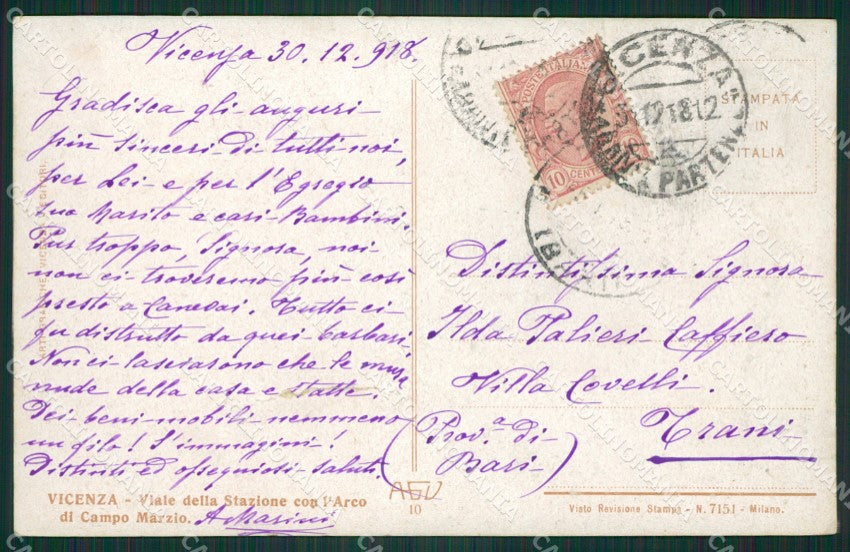 Vicenza 30.12.918.
Gradisca gli auguri
più sinceri di tutti noi,
per Lei e per l'Egregio
suo Marito e cari Bambini.
Pur troppo, Signora, noi
non ci troveremo più così
presto a Tutto ci
fu distrutto da quei barbari.
Non ci lasciarono che le mura
nude della casa e stalle.
Dei beni mobili nemmeno
un filo! S'immagini!
Distinti ed ossequiosi saluti.
A Marini
VICENZA - Viale della Stazione con l'Arco
di Campo Marzio.
AGV
10
POSTE ITALIANE
10 CENT
VICENZA
12 18 12
STAMPATA
IN
ITALIA
Distintissima Signora
Ilda Palieri Caffiero
Villa Covelli.
Trani
(Prov.a di
Bari)
Visto Revisione Stampa - N. 7151 - Milano.
CARTOLINOMANIA